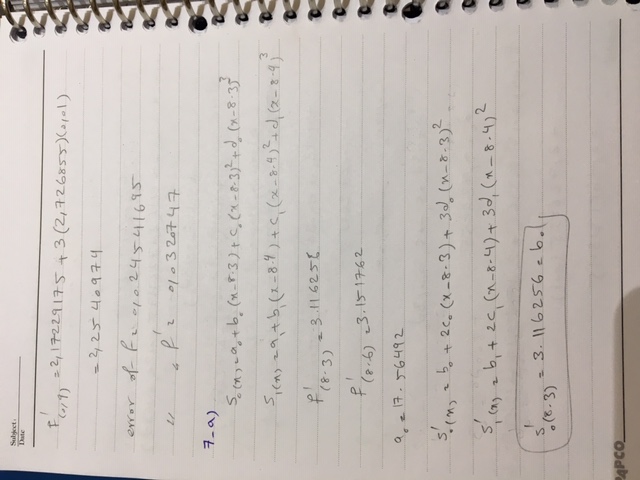 Subject:
Date
f'(0,9) = 2,17229175 + 3(2,726855)(0,01)
= 2,2540974
error of f = 0,024541695
" " f' = 0,0320747
7-a)
S₀(x) = a₀ + b₀(x-8.3) + c₀(x-8.3)² + d₀(x-8.3)³
S₁(x) = a₁ + b₁(x-8.4) + c₁(x-8.4)² + d₁(x-8.4)³
f'(8.3) = 3.116256
f'(8.6) = 3.151762
a₀ = 17.56492
S'₀(x) = b₀ + 2c₀(x-8.3) + 3d₀(x-8.3)²
S'₁(x) = b₁ + 2c₁(x-8.4) + 3d₁(x-8.4)²
S'₀(8.3) = 3.116256 = b₀
PAPCO